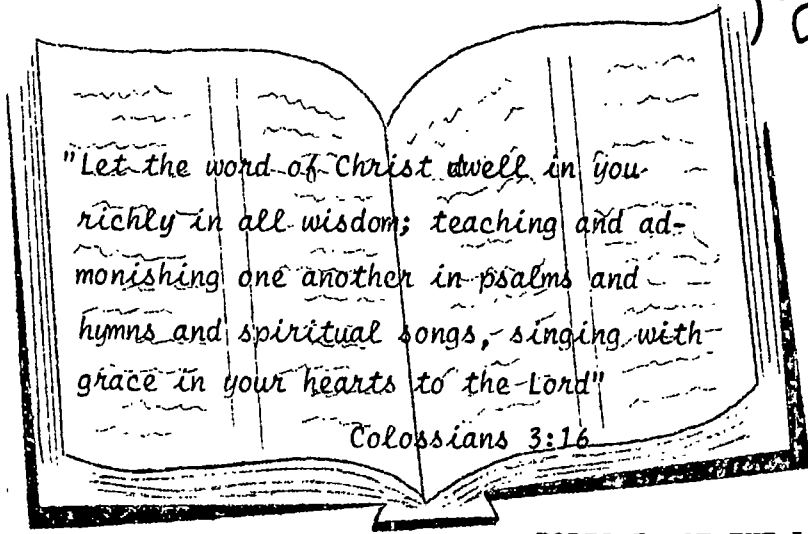 "Let the word of Christ dwell in you
richly in all wisdom; teaching and ad-
monishing one another in psalms and
hymns and spiritual songs, singing with
grace in your hearts to the Lord"
Colossians 3:16